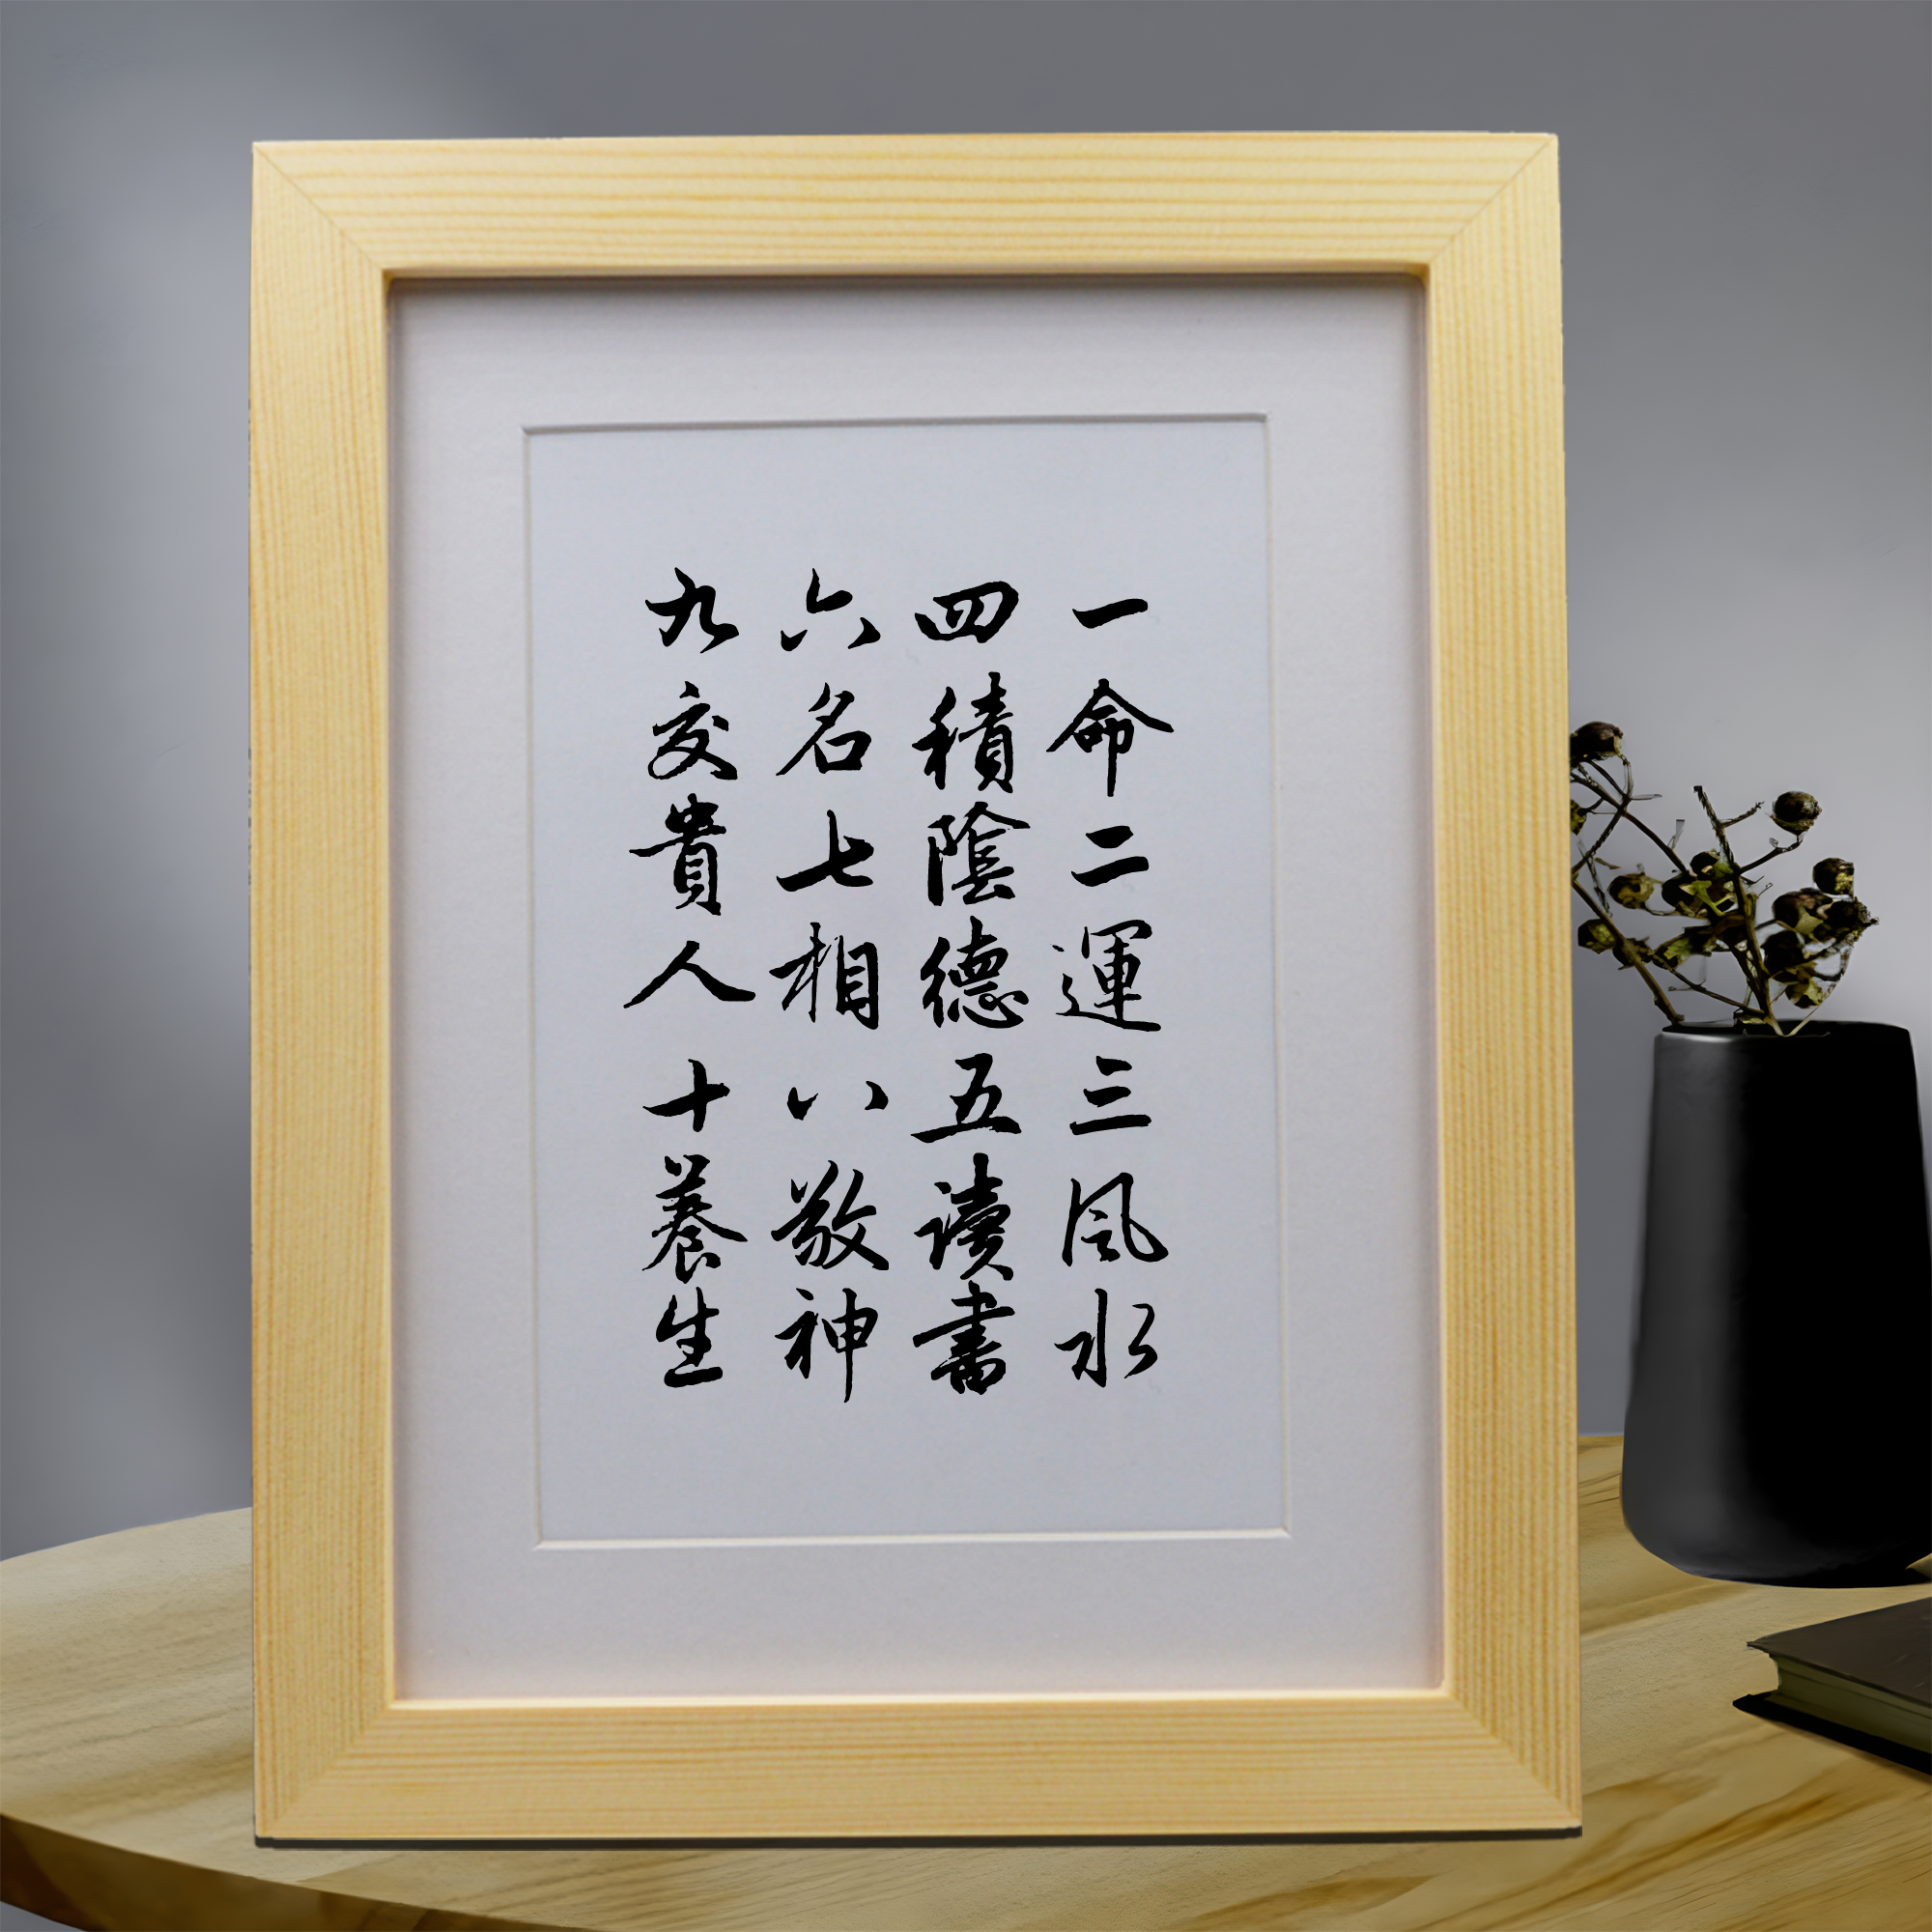 一命二運三風水
四積陰德五讀書
六名七相八敬神
九交貴人十養生